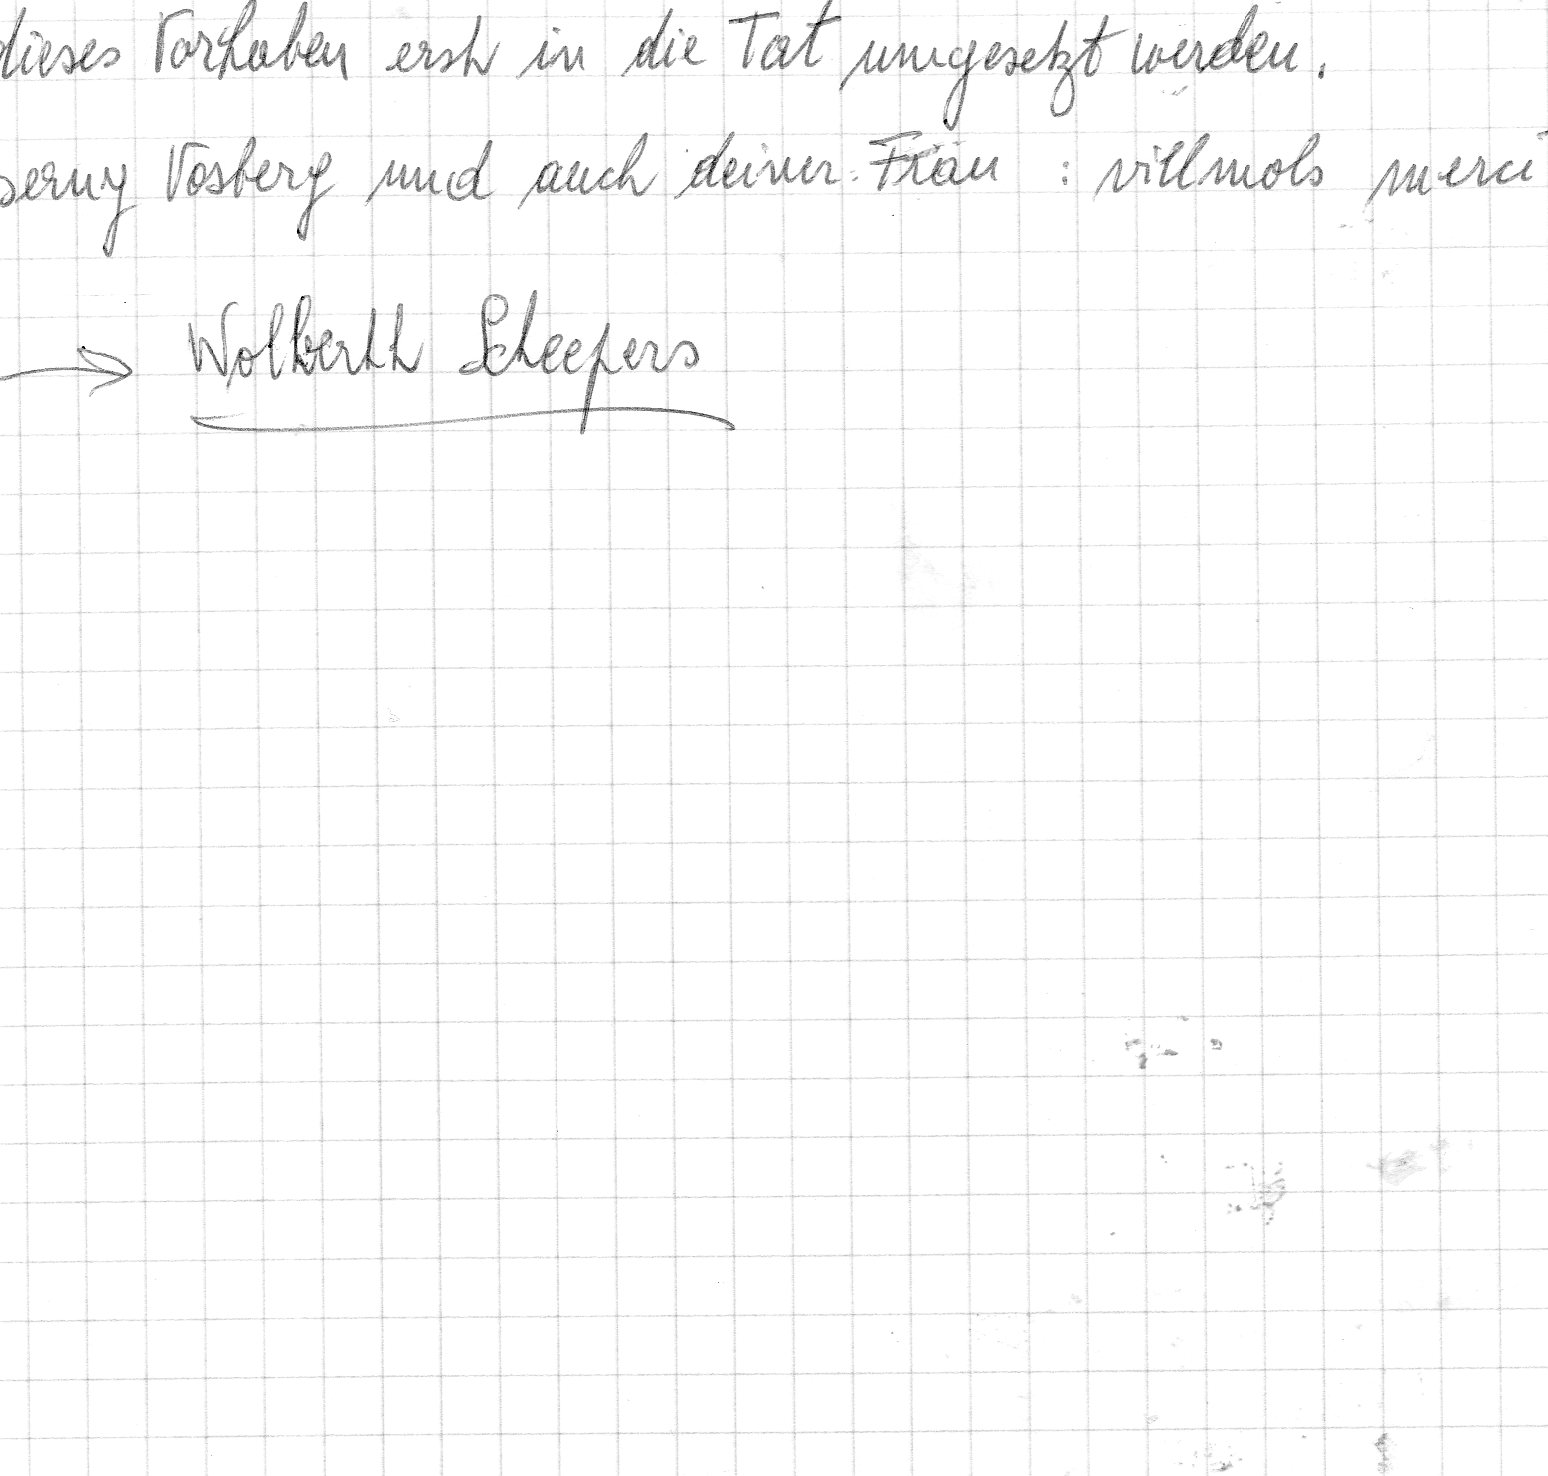 dieses Vorhaben erst in die Tat umgesetzt werden.
Vosberg und auch deiner Frau : villmols merci
Wolberth Scheepers